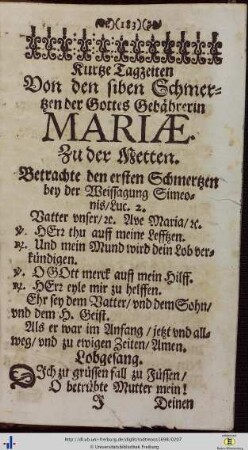 (183)
Kurtze Tagzeiten
Von den siben Schmer-
tzen der Gottes Gebährerin
MARIÆ.
Zu der Metten.
Betrachte den ersten Schmertzen
bey der Weissagung Simeo-
nis/Luc. 2.
Vatter vnser/ꝛc. Ave Maria/ꝛc.
℣. HErꝛ thu auff meine Lefftzen.
℟. Und mein Mund wird dein Lob ver-
kündigen.
℣. O GOtt merck auff mein Hilff.
℟. HErꝛ eyle mir zu helffen.
Ehr sey dem Vatter/vnd dem Sohn/
vnd dem H. Geist.
Als er war im Anfang/jetzt vnd all-
weg/vnd zu ewigen Zeiten/Amen.
Lobgesang.
DIch zu grüssen fall zu Füssen/
O betrübte Mutter mein!
J Deinen
© Universitätsbibliothek Freiburg